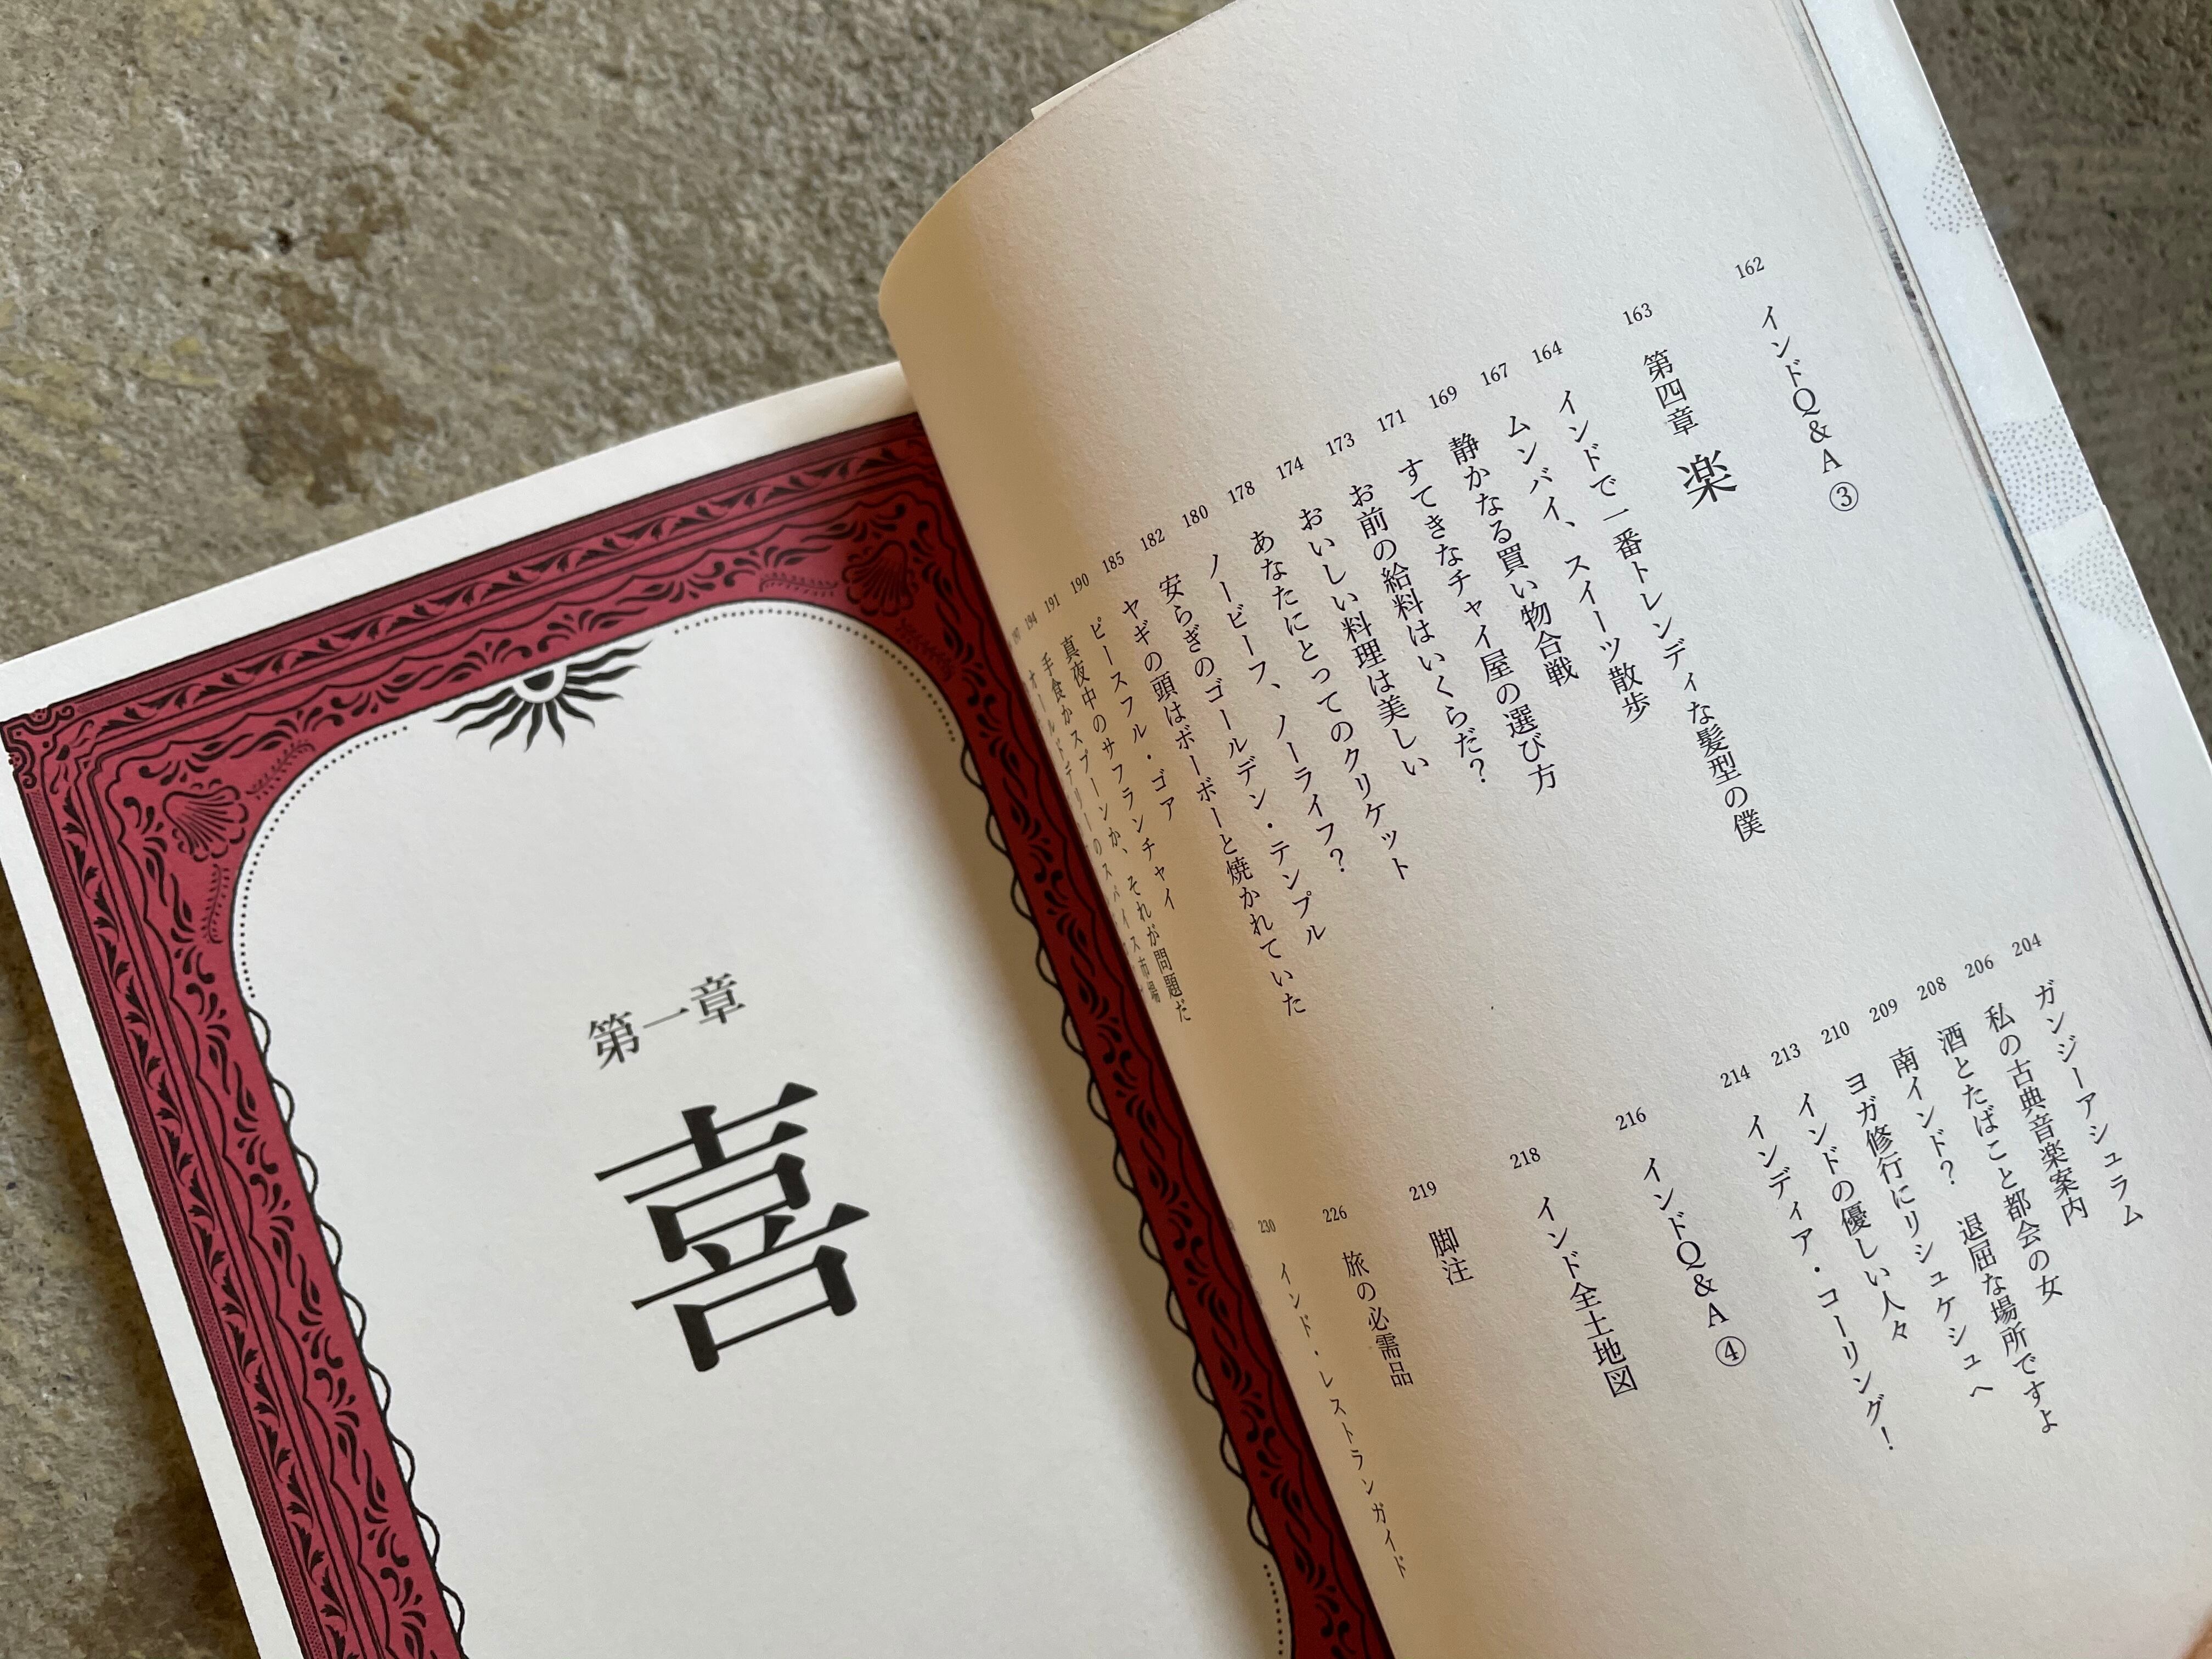 162 インドQ&A③
163 第四章 楽
164 インドで一番トレンディな髪型の僕
167 ムンバイ、スイーツ散歩
169 静かなる買い物合戦
171 すてきなチャイ屋の選び方
173 お前の給料はいくらだ？
174 おいしい料理は美しい
178 あなたにとってのクリケット
180 ノービーフ、ノーライフ？
182 安らぎのゴールデン・テンプル
185 ヤギの頭はボーボーと焼かれていた
190 ピースフル・ゴア
191 真夜中のサフランチャイ
194 手食かスプーンか、それが問題だ
197 オールドデリーのスパイス市場
204 ガンジーアシュラム
206 私の古典音楽案内
208 酒とたばこと都会の女
209 南インド？ 退屈な場所ですよ
210 ヨガ修行にリシュケシュへ
213 インドの優しい人々
214 インディア・コーリング！
216 インドQ&A④
218 インド全土地図
219 脚注
226 旅の必需品
230 インド・レストランガイド
第一章
喜